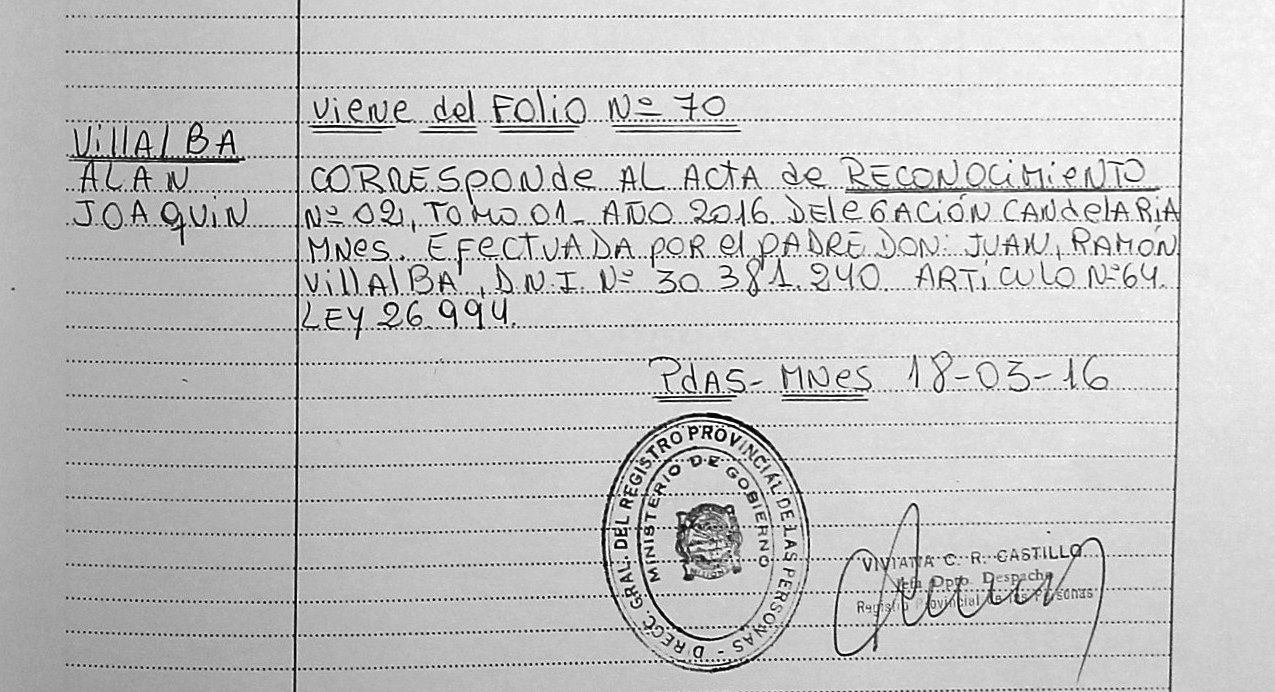 Viene del Folio Nº 70
Villalba
ALAN
JOAQUIN
CORRESponde AL Acta de RECONOCiMieNTO
Nº 02, TOMO 01- AÑO 2016 DEleGACIÓN CANdelARiA
MNes. EfecTUADA poR el PADRE DON: JUAN, RAMÓN
VillAlBA, D.N.I. Nº 30.381.240 ARTíCULO Nº64.
LEY 26.994.
PdAS- MNes 18-03-16
DIRECC. GRAL. DEL REGISTRO PROVINCIAL DE LAS PERSONAS -
MINISTERIO DE GOBIERNO
VIVIANA C. R. CASTILLO
Jefa Dpto. Despacho
Registro Provincial de las Personas